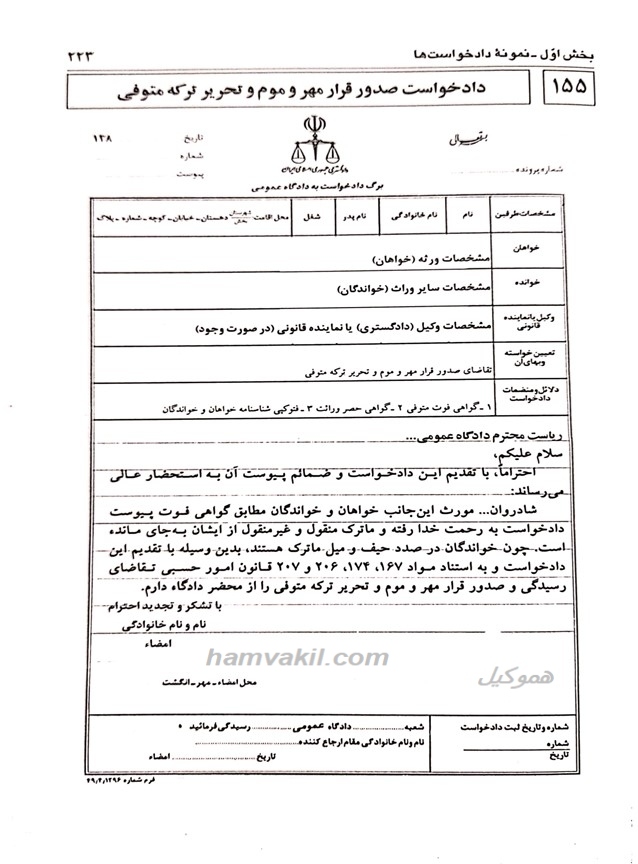 بخش اوّل ـ نمونهٔ دادخواست‌ها
۲۲۳
۱۵۵
دادخواست صدور قرار مهر و موم و تحریر ترکه متوفی
تاریخ ۱۳۸
شماره
پیوست
دادگستری جمهوری اسلامی ایران
شماره پرونده
برگ دادخواست به دادگاه عمومی
مشخصات طرفین
نام
نام خانوادگی
نام پدر
شغل
محل اقامت شهرستان بخش دهستان ـ خیابان ـ کوچه ـ شماره ـ پلاک
خواهان
مشخصات ورثه (خواهان)
خوانده
مشخصات سایر وراث (خواندگان)
وکیل یا نماینده قانونی
مشخصات وکیل (دادگستری) یا نماینده قانونی (در صورت وجود)
تعیین خواسته وبهای آن
تقاضای صدور قرار مهر و موم و تحریر ترکه متوفی
دلائل و منضمات دادخواست
۱ ـ گواهی فوت متوفی ۲ ـ گواهی حصر وراثت ۳ ـ فتوکپی شناسنامه خواهان و خواندگان
ریاست محترم دادگاه عمومی...
سلام علیکم،
احتراماً، با تقدیم این دادخواست و ضمائم پیوست آن به استحضار عالی
می‌رساند:
شادروان... مورث این‌جانب خواهان و خواندگان مطابق گواهی فوت پیوست
دادخواست به رحمت خدا رفته و ماترک منقول و غیرمنقول از ایشان به‌جای مانده
است. چون خواندگان در صدد حیف و میل ماترک هستند، بدین وسیله با تقدیم این
دادخواست و به استناد مواد ۱۶۷، ۱۷۴، ۲۰۶ و ۲۰۷ قانون امور حسبی تقاضای
رسیدگی و صدور قرار مهر و موم و تحریر ترکه متوفی را از محضر دادگاه دارم.
با تشکر و تجدید احترام
نام و نام خانوادگی
امضاء
hamvakil.com
هموکیل
محل امضاء ـ مهر ـ انگشت
شماره و تاریخ ثبت دادخواست
شماره
تاریخ
شعبه ............ دادگاه عمومی ............ رسیدگی فرمائید
نام ونام خانوادگی مقام ارجاع کننده ............
تاریخ ............ امضاء
فرم شماره ۴۹٫۴٫۱۲۹۶